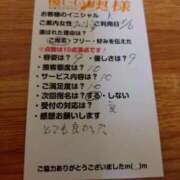 お客様のイニシャル
ご案内女性
ご利用日 5/6
選ばれた理由は？
ご指定・フリー・好みを伝えた
☆点数は10点満点です☆
・容姿は？ 9 ・優しさは？ 9
・接客態度は？ 10
・サービス内容は？ 10
・ご満足度は？ 10
・次回指名は？する・しない
・受付の対応は？ 良
感想お願いします
とても良かった
ご協力ありがとうございましたm(__)m